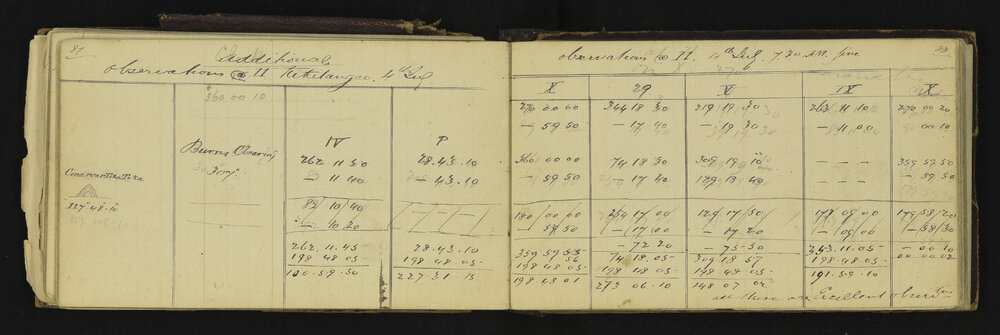 87
Additional
Observations @ II 4th July
360 00 10
Burns Clearing
307°
IV
262. 11 50
— 11 40
82/10/40
262. 11. 45
198 48 05
100. 59. 50
P
28. 43. 10
— 43. 10
28. 43. 10
198 48 05
227. 31 15
117°. 48'. 10
Observations @ II. 4th July. 7.30 AM. fine
X
270 00 00
— 59 50
360 00 00
— 59 50
180/00/00
— 59 50
359 59 55
198 48 05
198 48 01
29
344 18 30
— 17 40
74 18 30
— 17 40
254 17 00
— 17 00
— 72 20
74 18 05
198 48 05
273 06 10
V
219 19 30
— 19 30
309 19 10
129 17 50
— 17 20
— 75 50
309 18 57
198 48 05
148 07 02
IX
263 11 10
— 11 00
— — —
— 09/00
263. 11. 05
198 48 05
101. 59. 10
X
270 00 20
00 10
— — —
359 59 50
179/58/20
— 58/30
— 00 10
00 00 02
all these are Excellent observtns